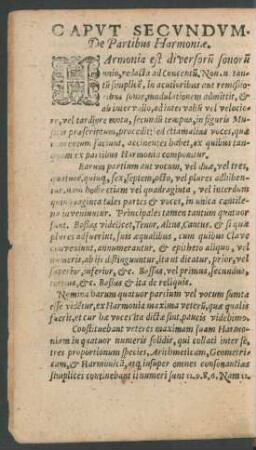 CAPVT SECVNDVM.
De Partibus Harmoniæ.
HArmonia est diversorū sonorū
unio, redacta ad Concentū, Non. n. tan-
tū simplicē, in acutioribus aut remissi-
oribus sonis, modulationem admittit, &
ab intervallo, ac itates vel velocio-
re, vel tardiore mota, secundū tempus, in figuris Mu-
sicis præscriptum, procedit: sed etiam alias voces, quæ
concentum faciunt, accinentes habet, ex quibus tan-
quam ex partibus Harmonia componitur.
Harum partium aut vocum, vel duæ, vel tres,
quatuor, quinq, sex, septem, octo, vel plures adhiben-
tur, non hodie etiam vel quadraginta, vel interdum
quinquaginta tales partes & voces, in unica cantile-
na inveniuntur. Principales tamen tantum quatuor
sunt. Bassus videlicet, Tenor, Altus, Cantus, & si quæ
plures adfuerint, suis æqualibus, cum quibus Clave
conveniunt, annumerantur, & epitheto aliquo, vel
numeris, ab iis distinguuntur, ita ut dicatur, prior, vel
superior, inferior, &c. Bassus, vel primus, secundus,
tertius, &c. Bassus & ita de reliquis.
Nomina harum quatuor partium vel vocum sumta
esse videtur, ex Harmonia maxima veterū, quæ qualis
fuerit, et cur hæ voces ita dictæ sint, paucis videbimus.
Constituebant veteres maximam suam Harmo-
niam in quatuor numeris solidis, qui collati inter se,
tres proportionum species, Arithmeticam, Geometri-
cam, & Harmonicā, atq insuper omnes consonantias
simplices continebant ii numeri sunt 12.9.8.6. Nam 12.